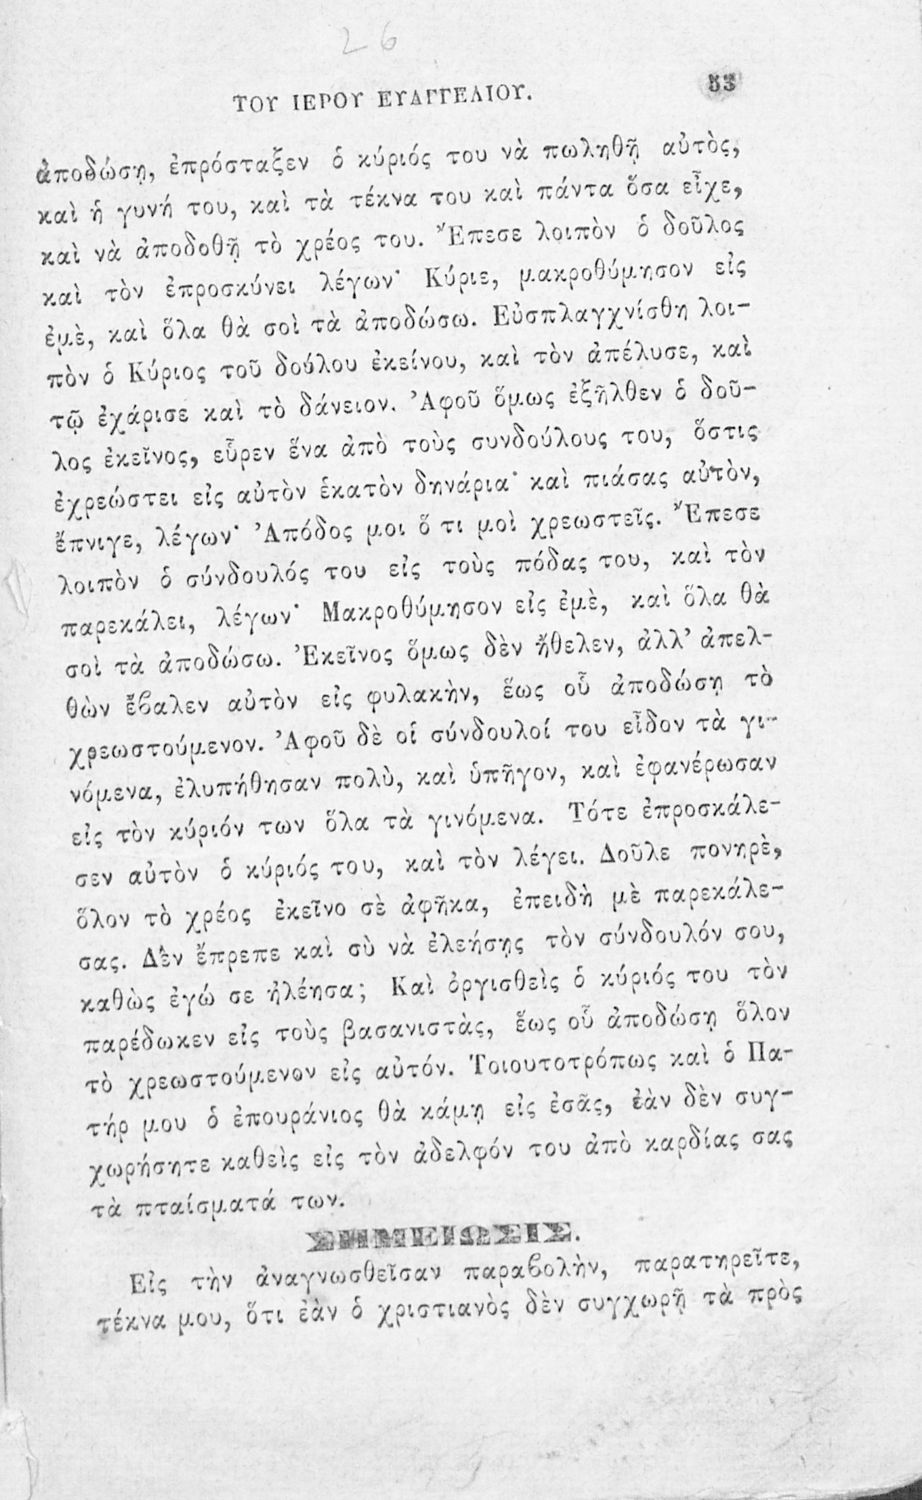 26
ΤΟΥ ΙΕΡΟΥ ΕΥΑΓΓΕΛΙΟΥ. 53
ἀποδώσῃ, ἐπρόσταξεν ὁ κύριός του νὰ πωληθῇ αὐτὸς,
καὶ ἡ γυνή του, καὶ τὰ τέκνα του καὶ πάντα ὅσα εἶχε,
καὶ νὰ ἀποδοθῇ τὸ χρέος του. Ἔπεσε λοιπὸν ὁ δοῦλος
καὶ τὸν ἐπροσκύνει λέγων· Κύριε, μακροθύμησον εἰς
ἐμὲ, καὶ ὅλα θὰ σοὶ τὰ ἀποδώσω. Εὐσπλαγχνίσθη λοι-
πὸν ὁ Κύριος τοῦ δούλου ἐκείνου, καὶ τὸν ἀπέλυσε, καὶ
τῷ ἐχάρισε καὶ τὸ δάνειον. Ἀφοῦ ὅμως ἐξῆλθεν ὁ δοῦ-
λος ἐκεῖνος, εὗρεν ἕνα ἀπὸ τοὺς συνδούλους του, ὅστις
ἐχρεώστει εἰς αὐτὸν ἑκατὸν δηνάρια· καὶ πιάσας αὐτὸν,
ἔπνιγε, λέγων· Ἀπόδος μοι ὅ τι μοὶ χρεωστεῖς. Ἔπεσε
λοιπὸν ὁ σύνδουλός του εἰς τοὺς πόδας του, καὶ τὸν
παρεκάλει, λέγων· Μακροθύμησον εἰς ἐμὲ, καὶ ὅλα θὰ
σοὶ τὰ ἀποδώσω. Ἐκεῖνος ὅμως δὲν ἤθελεν, ἀλλ’ ἀπελ-
θὼν ἔβαλεν αὐτὸν εἰς φυλακὴν, ἕως οὗ ἀποδώσῃ τὸ
χρεωστούμενον. Ἀφοῦ δὲ οἱ σύνδουλοί του εἶδον τὰ γι-
νόμενα, ἐλυπήθησαν πολὺ, καὶ ὑπῆγον, καὶ ἐφανέρωσαν
εἰς τὸν κύριόν των ὅλα τὰ γινόμενα. Τότε ἐπροσκάλε-
σεν αὐτὸν ὁ κύριός του, καὶ τὸν λέγει. Δοῦλε πονηρὲ,
ὅλον τὸ χρέος ἐκεῖνο σὲ ἀφῆκα, ἐπειδὴ μὲ παρεκάλε-
σας. Δὲν ἔπρεπε καὶ σὺ νὰ ἐλεήσῃς τὸν σύνδουλόν σου,
καθὼς ἐγώ σε ἠλέησα; Καὶ ὀργισθεὶς ὁ κύριός του τὸν
παρέδωκεν εἰς τοὺς βασανιστὰς, ἕως οὗ ἀποδώσῃ ὅλον
τὸ χρεωστούμενον εἰς αὐτόν. Τοιουτοτρόπως καὶ ὁ Πα-
τήρ μου ὁ ἐπουράνιος θὰ κάμῃ εἰς ἐσᾶς, ἐὰν δὲν συγ-
χωρήσητε καθεὶς εἰς τὸν ἀδελφόν του ἀπὸ καρδίας σας
τὰ πταίσματά των.
ΣΗΜΕΙΩΣΙΣ.
Εἰς τὴν ἀναγνωσθεῖσαν παραβολὴν, παρατηρεῖτε,
τέκνα μου, ὅτι ἐὰν ὁ χριστιανὸς δὲν συγχωρῇ τὰ πρὸς